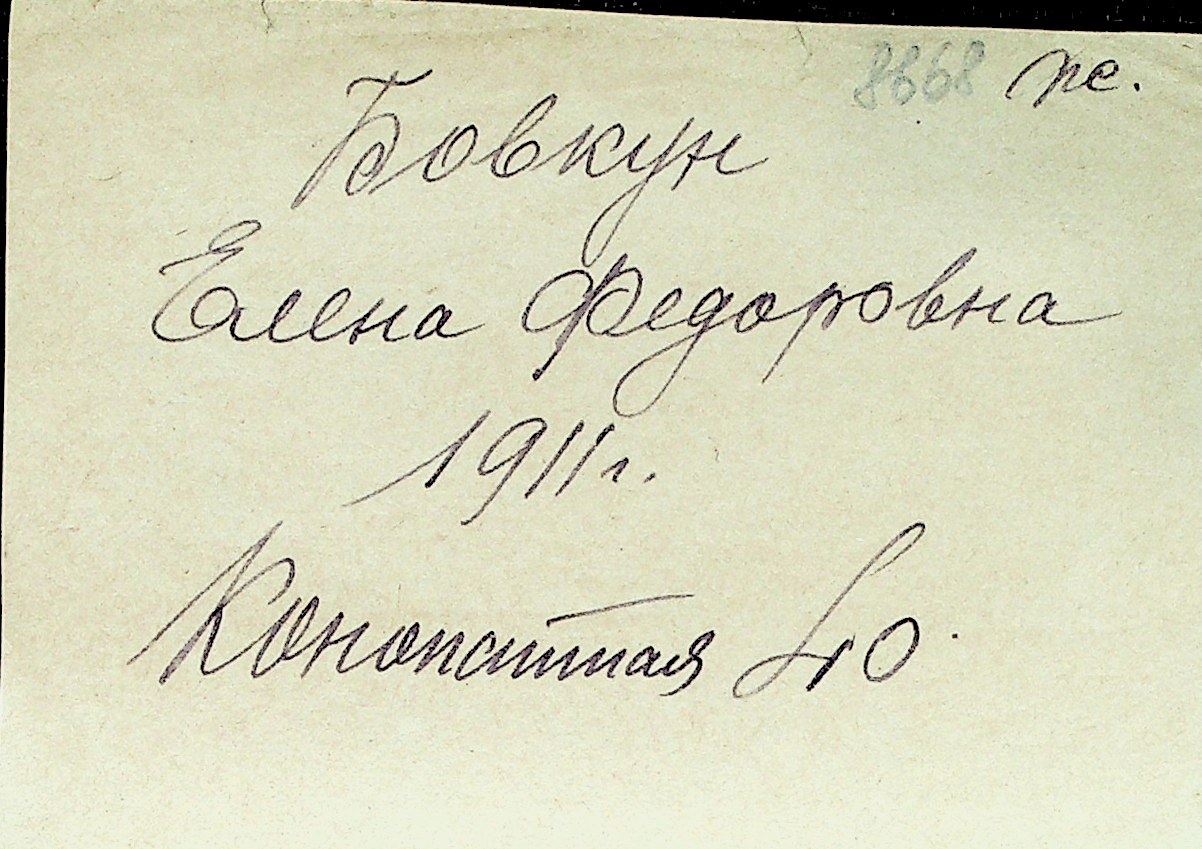 8668 пс.
Бовкун
Елена Федоровна
1911 г.
Конопатная 40